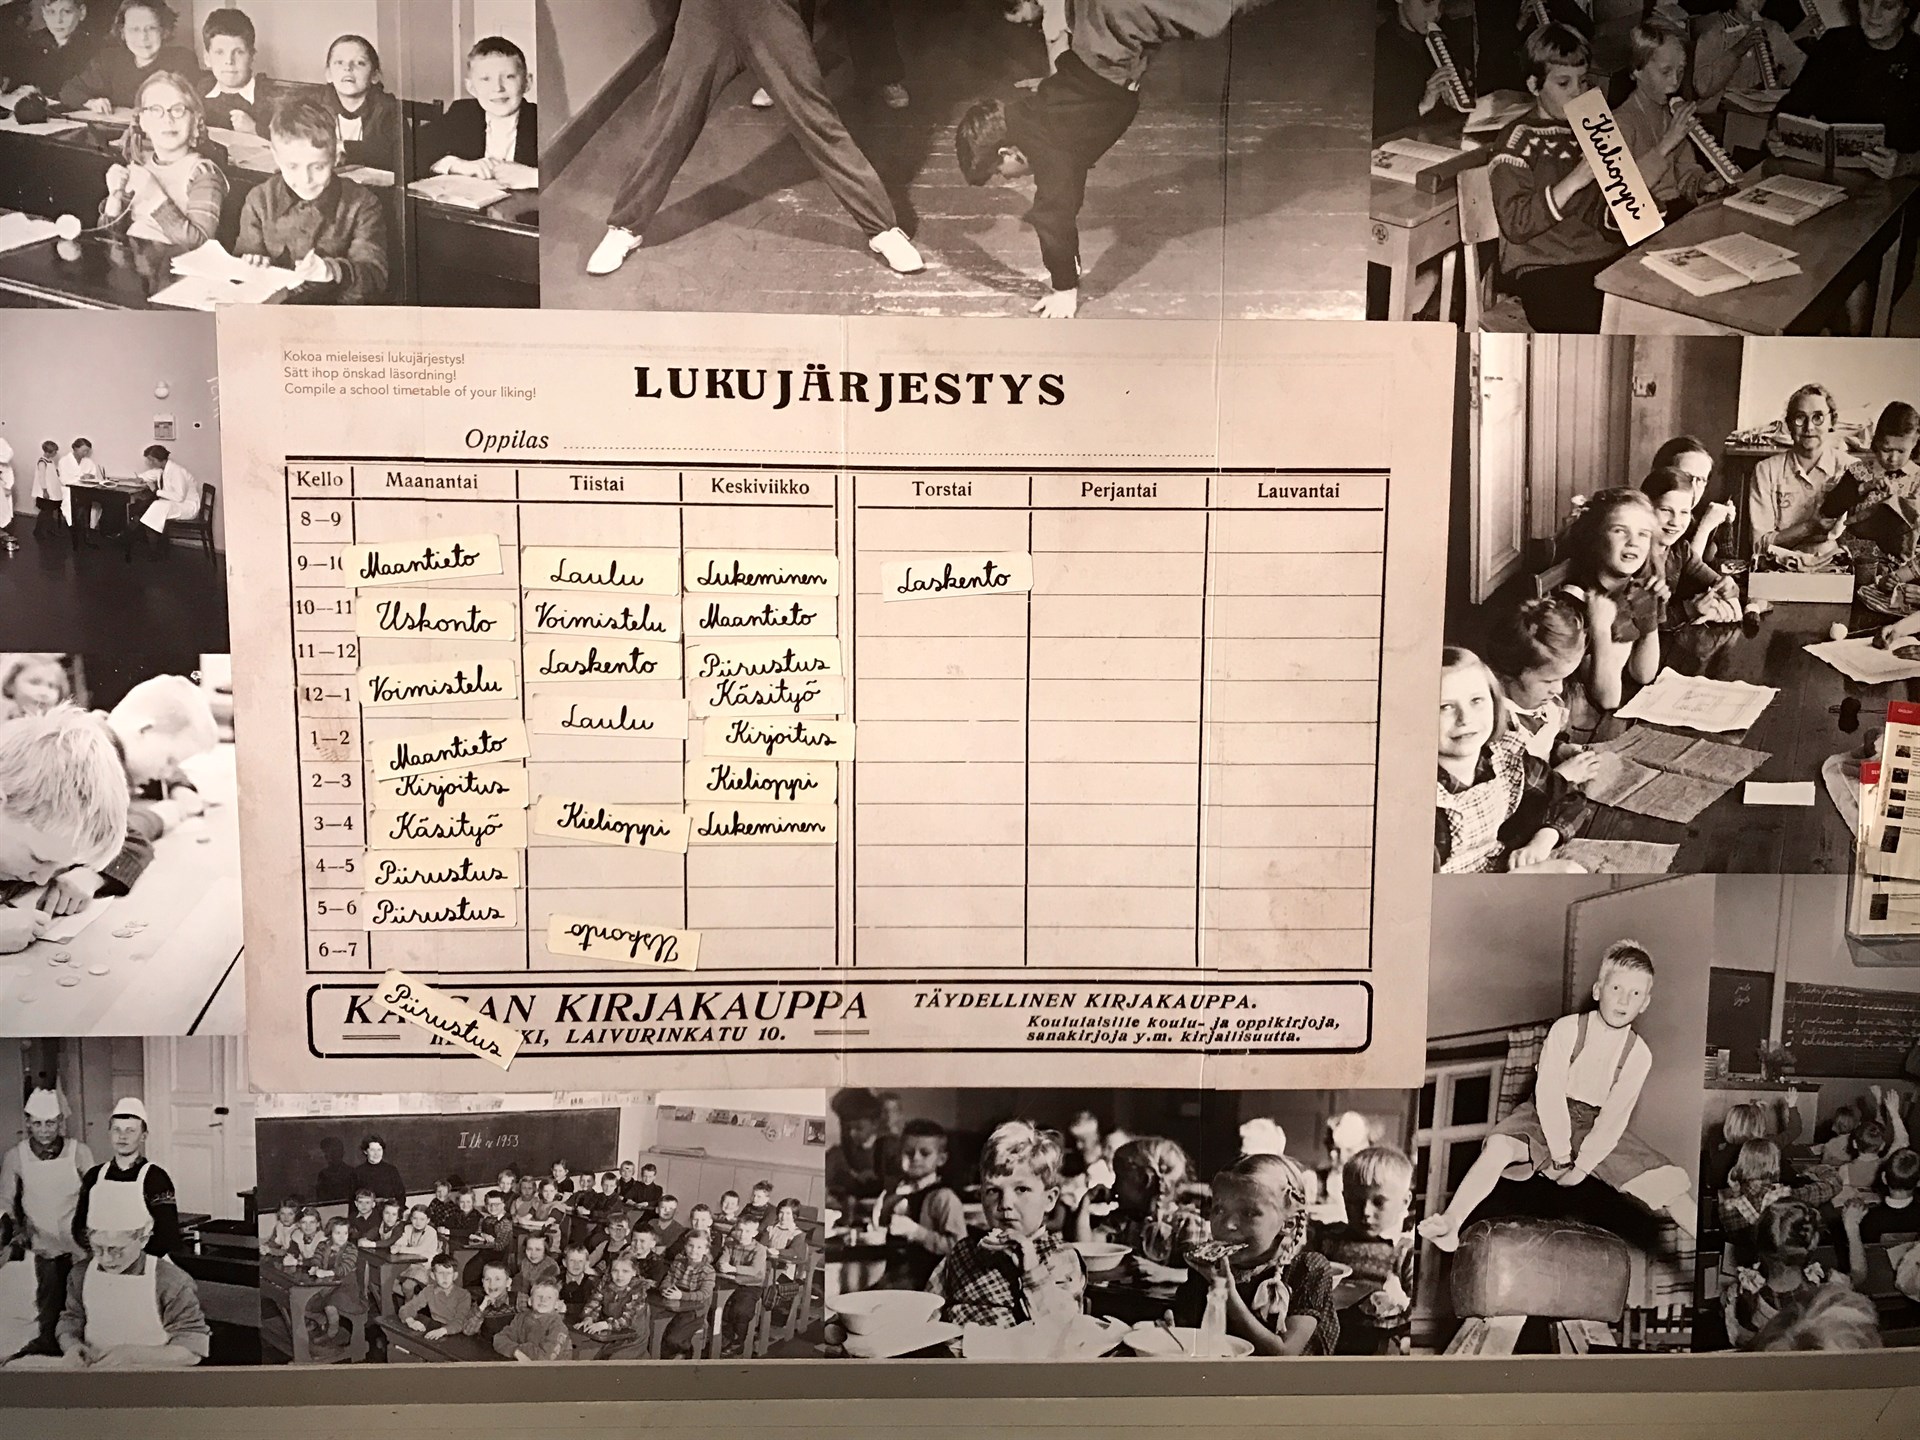 Kielioppi
Kokoa mieleisesi lukujärjestys!
Sätt ihop önskad läsordning!
Compile a school timetable of your liking!
LUKUJÄRJESTYS
Oppilas
Kello Maanantai Tiistai Keskiviikko Torstai Perjantai Lauvantai
8—9
9—10 Maantieto Laulu Lukeminen Laskento
10—11 Uskonto Voimistelu Maantieto
11—12 Laskento Piirustus
12—1 Voimistelu Laulu Käsityö
1—2 Maantieto Kirjoitus
2—3 Kirjoitus Kielioppi
3—4 Käsityö Kielioppi Lukeminen
4—5 Piirustus
5—6 Piirustus
6—7 Uskonto
Piirustus
KIRJAKAUPPA
LAIVURINKATU 10.
TÄYDELLINEN KIRJAKAUPPA.
Koululaisille koulu- ja oppikirjoja,
sanakirjoja y.m. kirjallisuutta.
II lk 1953